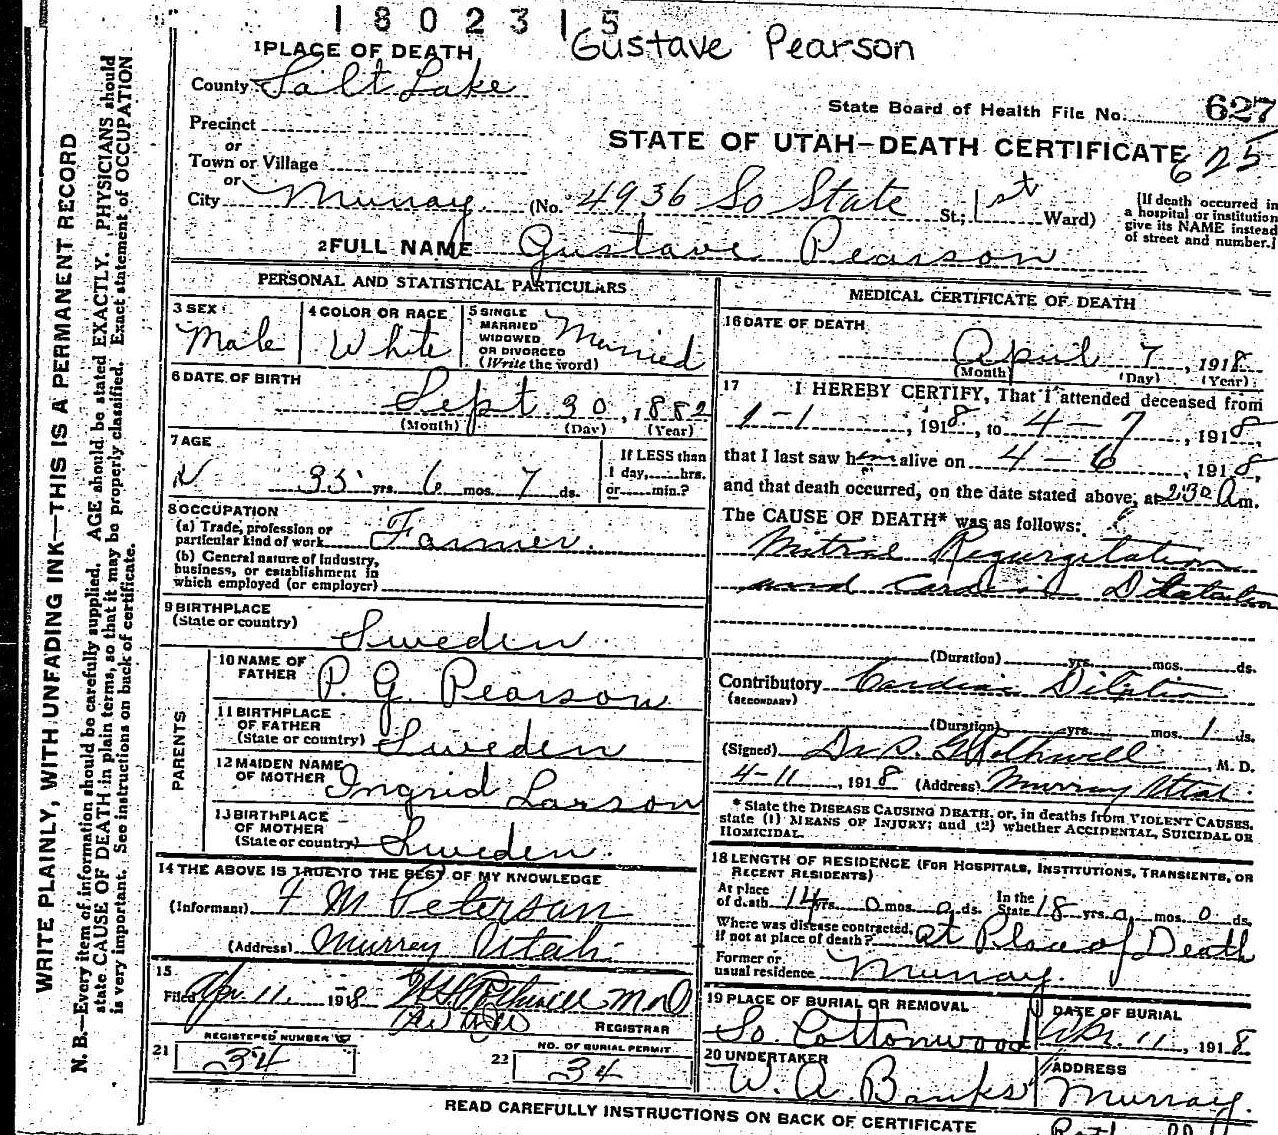 1802315
Gustave Pearson
1 PLACE OF DEATH
County Salt Lake
State Board of Health File No. 627
625
Precinct
or
Town or Village
or
STATE OF UTAH—DEATH CERTIFICATE
City Murray (No. 4936 So State St.; 1st Ward)
[If death occurred in
a hospital or institution
give its NAME instead
of street and number.]
2 FULL NAME Gustave Pearson
PERSONAL AND STATISTICAL PARTICULARS
3 SEX
Male
4 COLOR OR RACE
White
5 SINGLE
MARRIED
WIDOWED
OR DIVORCED
(Write the word)
Married
6 DATE OF BIRTH
Sept 30, 1882
(Month) (Day) (Year)
7 AGE
35 yrs. 6 mos. 7 ds.
If LESS than
1 day,......hrs.
or......min.?
8 OCCUPATION
(a) Trade, profession or
particular kind of work Farmer.
(b) General nature of Industry,
business, or establishment in
which employed (or employer)
9 BIRTHPLACE
(State or country)
Sweden
PARENTS
10 NAME OF
FATHER
P. G. Pearson
11 BIRTHPLACE
OF FATHER
(State or country) Sweden
12 MAIDEN NAME
OF MOTHER
Ingrid Larson
13 BIRTHPLACE
OF MOTHER
(State or country) Sweden.
14 THE ABOVE IS TRUE TO THE BEST OF MY KNOWLEDGE
(Informant) F M Peterson
(Address) Murray Utah.
15
Filed Apr. 11. 1918
REGISTRAR
REGISTERED NUMBER
21 34
NO. OF BURIAL PERMIT
22 34
MEDICAL CERTIFICATE OF DEATH
16 DATE OF DEATH
April 7, 1918
(Month) (Day) (Year)
17 I HEREBY CERTIFY, That I attended deceased from
1-1, 1918, to 4-7, 1918,
that I last saw him alive on 4-6, 1918,
and that death occurred, on the date stated above, at 230 A m.
The CAUSE OF DEATH* was as follows:
Mitral Regurgitation
and Cardiac Dilatation
(Duration) yrs. mos. ds.
Contributory Cardiac Dilation
(SECONDARY)
(Duration) yrs. mos. 1 ds.
(Signed) Rothwell, M. D.
4-11, 1918 (Address) Murray Utah.
* State the DISEASE CAUSING DEATH, or, in deaths from VIOLENT CAUSES,
state (1) MEANS OF INJURY; and (2) whether ACCIDENTAL, SUICIDAL OR
HOMICIDAL.
18 LENGTH OF RESIDENCE (FOR HOSPITALS, INSTITUTIONS, TRANSIENTS, OR
RECENT RESIDENTS)
At place
of death 14 yrs. 0 mos. 0 ds. In the
State 18 yrs. 0 mos. 0 ds.
Where was disease contracted,
If not at place of death? at Place of Death
Former or
usual residence Murray.
19 PLACE OF BURIAL OR REMOVAL
So. Cottonwood
DATE OF BURIAL
Apr. 11, 1918
20 UNDERTAKER
W. A. Banks
ADDRESS
Murray.
READ CAREFULLY INSTRUCTIONS ON BACK OF CERTIFICATE
WRITE PLAINLY, WITH UNFADING INK—THIS IS A PERMANENT RECORD
N. B.—Every item of information should be carefully supplied. AGE should be stated EXACTLY. PHYSICIANS should
state CAUSE OF DEATH in plain terms, so that it may be properly classified. Exact statement of OCCUPATION
is very important. See instructions on back of certificate.